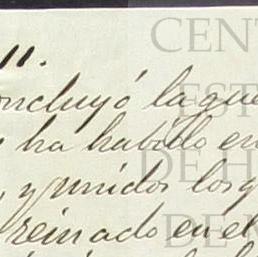 11.
oncluyó la gue
ha habido en
, y unidos los q
reinado en el
CENT
EST
DE H
DE M